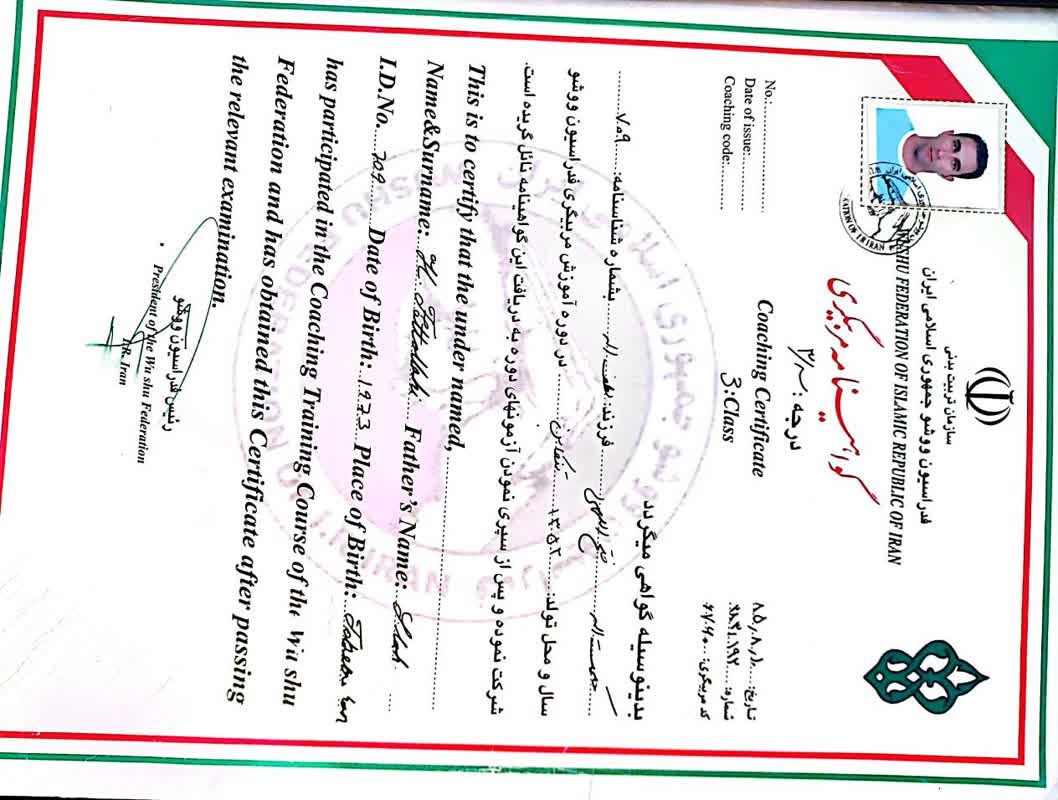 سازمان تربیت بدنی
فدراسیون ووشو جمهوری اسلامی ایران
WUSHU FEDERATION OF ISLAMIC REPUBLIC OF IRAN
گواهینامه مربیگری
درجه : ۳
Coaching Certificate
3:Class
No.:
Date of issue:
Coaching code:
تاریخ: ۸۵٫۸٫۱۰
شماره:
کد مربیگری:
بدینوسیله گواهی میگردد
فرزند: بشماره شناسنامه: ۷۰۹
سال و محل تولد: ۱۳۵۲ تنکابن در دوره آموزش مربیگری فدراسیون ووشو
شرکت نموده و پس از سپری نمودن آزمونهای دوره به دریافت این گواهینامه نائل گردیده است.
This is to certify that the under named,
Name&Surname: Father's Name:
I.D.No. 709 Date of Birth: 1973 Place of Birth:
has participated in the Coaching Training Course of the Wu shu
Federation and has obtained this Certificate after passing
the relevant examination.
رئیس فدراسیون ووشو
President of the Wu shu Federation
I.R. Iran